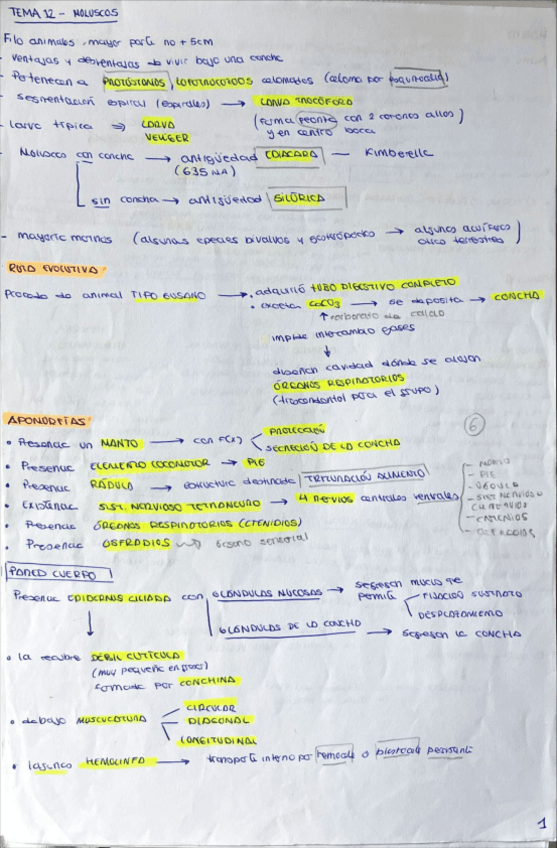 TEMA 12 - MOLUSCOS
Filo animales, mayor parte no + 5cm
- ventajas y desventajas de vivir bajo una concha
- Pertenecen a PROTÓSTOMOS, LOFOTROCOZOOS celomados (celoma por esquizocelia)
- segmentación espiral (espirales) → LARVA TROCÓFORA
(forma peonza con 2 coronas cilios)
y en centro boca
- larva típica ⇒ LARVA
VELIGER
- Moluscos con concha → antigüedad EDIACARA — Kimberella
(635 MA)
sin concha → antigüedad SILÚRICA
- mayoría marinos (algunas especies bivalvos y gasterópodos → algunos acuíferos
otros terrestres)
RUTA EVOLUTIVA
Procede de animal TIPO GUSANO → · adquirió TUBO DIGESTIVO COMPLETO
· excreta CaCO3 → se deposita → CONCHA
↑ carbonato de calcio
impide intercambio gases
↓
diseñan cavidad dónde se alojan
ÓRGANOS RESPIRATORIOS
(trascendental para el grupo)
APOMORFÍAS
6
• Presencia un MANTO → con f(x) PROTECCIÓN
SECRECIÓN DE LA CONCHA
• Presencia ELEMENTO LOCOMOTOR → PIE
• Presencia RÁDULA → estructura destinada TRITURACIÓN ALIMENTO
• Existencia SIST. NERVIOSO TETRANEURO → 4 nervios centrales ventrales
• Presencia ÓRGANOS RESPIRATORIOS (CTENIDIOS)
• Presencia OSFRADIOS → órgano sensorial
- MANTO
- PIE
- RÁDULA
- SIST NERVIOSO
4 NERVIOS
- CTENIDIOS
- OSFRADIOS
PARED CUERPO
Presencia EPIDERMIS CILIADA con GLÁNDULAS MUCOSAS → segregan mucus que
permite FIJACIÓN SUSTRATO
DESPLAZAMIENTO
GLÁNDULAS DE LA CONCHA → segregan la CONCHA
• la recubre DÉBIL CUTÍCULA
(muy pequeño en grosor)
formada por CONCHINA
• debajo MUSCULATURA CIRCULAR
DIAGONAL
LONGITUDINAL
• HEMOLINFA → transporte interno por hemocele o
1